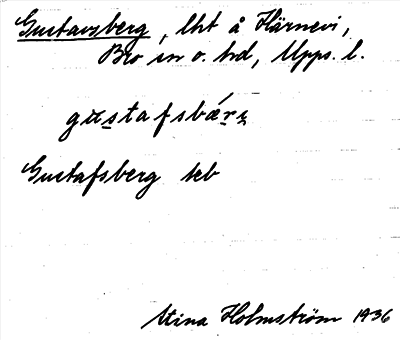 Gustavsberg, lht å Härnevi,
Bro sn o. hd, Upps. l.
gustafsbärj
Gustafsberg jeb
Stina Holmström 1936